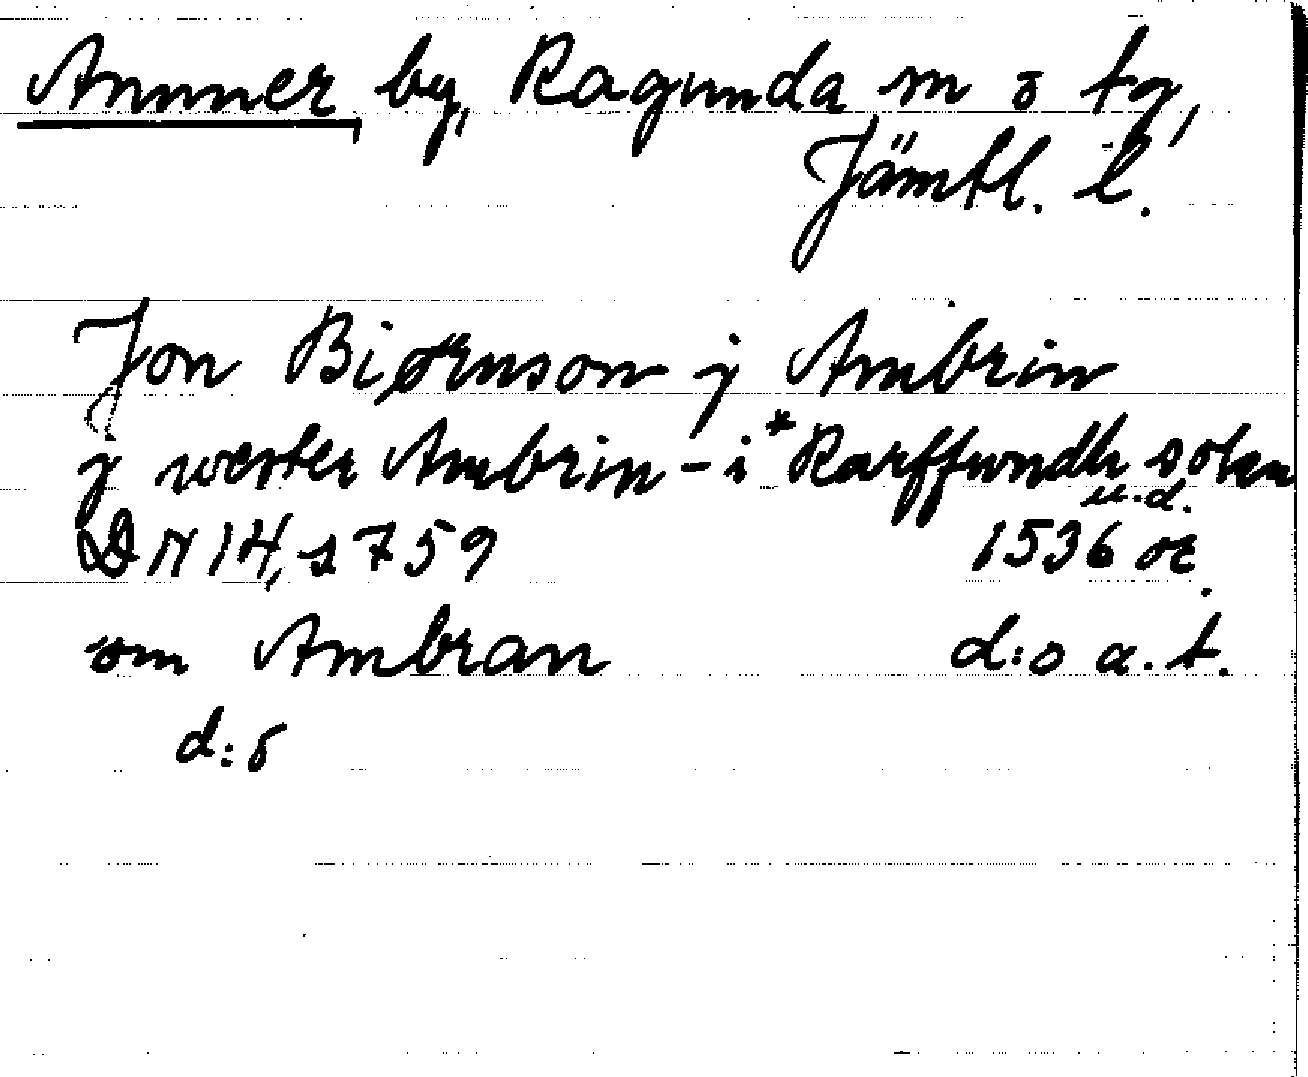 Ammer by, Ragunda sn o tg,
Jämtl. l.
Jon Biørnson j Ambrin
j wester Ambrin - i * Rarffwndh sokn
DN 14, s 759 1536 u.d. or.
om Ambran d:o a.t.
d:o